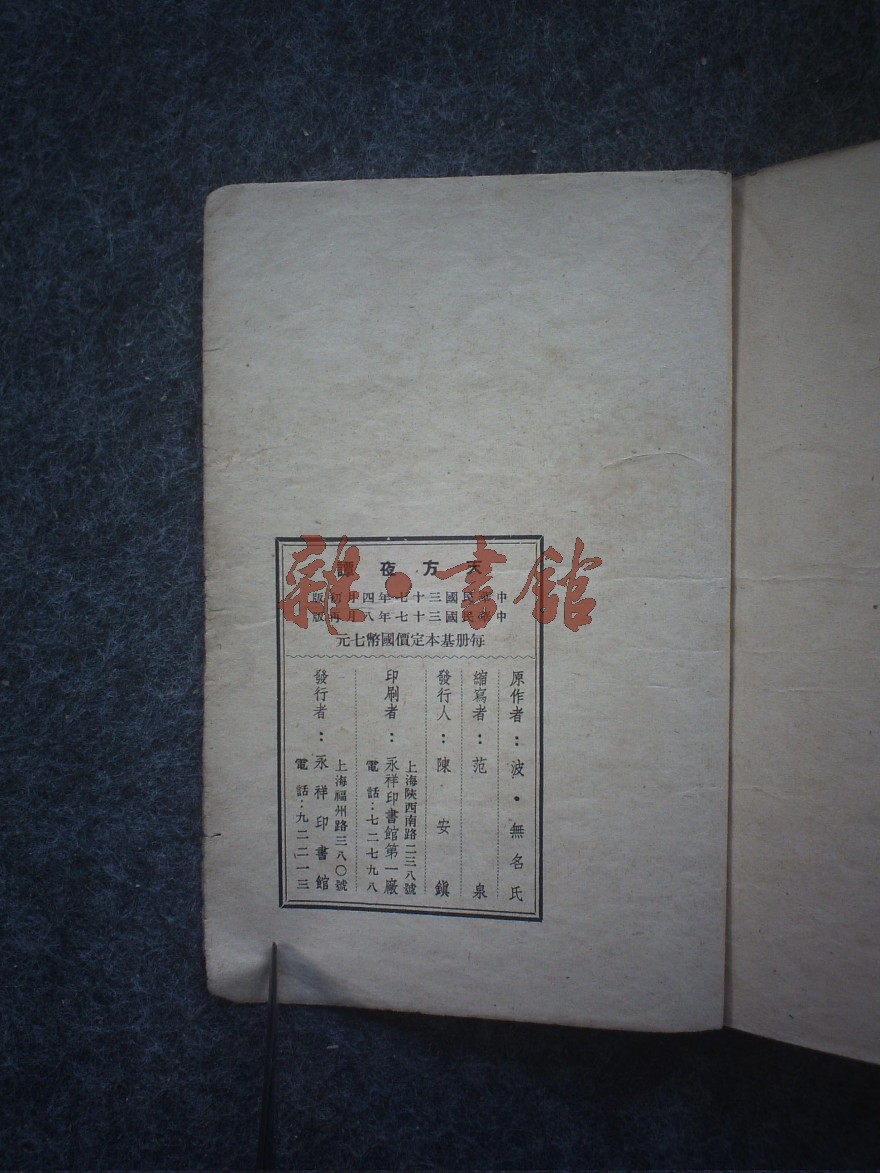 天方夜譚
中華民國三十七年四月初版
中華民國三十七年八月再版
每册基本定價國幣七元
原作者：波・無名氏
縮寫者：范泉
發行人：陳安鎭
印刷者：永祥印書館第一廠
上海陝西南路二三八號
電話：七二七九八
發行者：永祥印書館
上海福州路三八〇號
電話：九二二一三
雜・書館